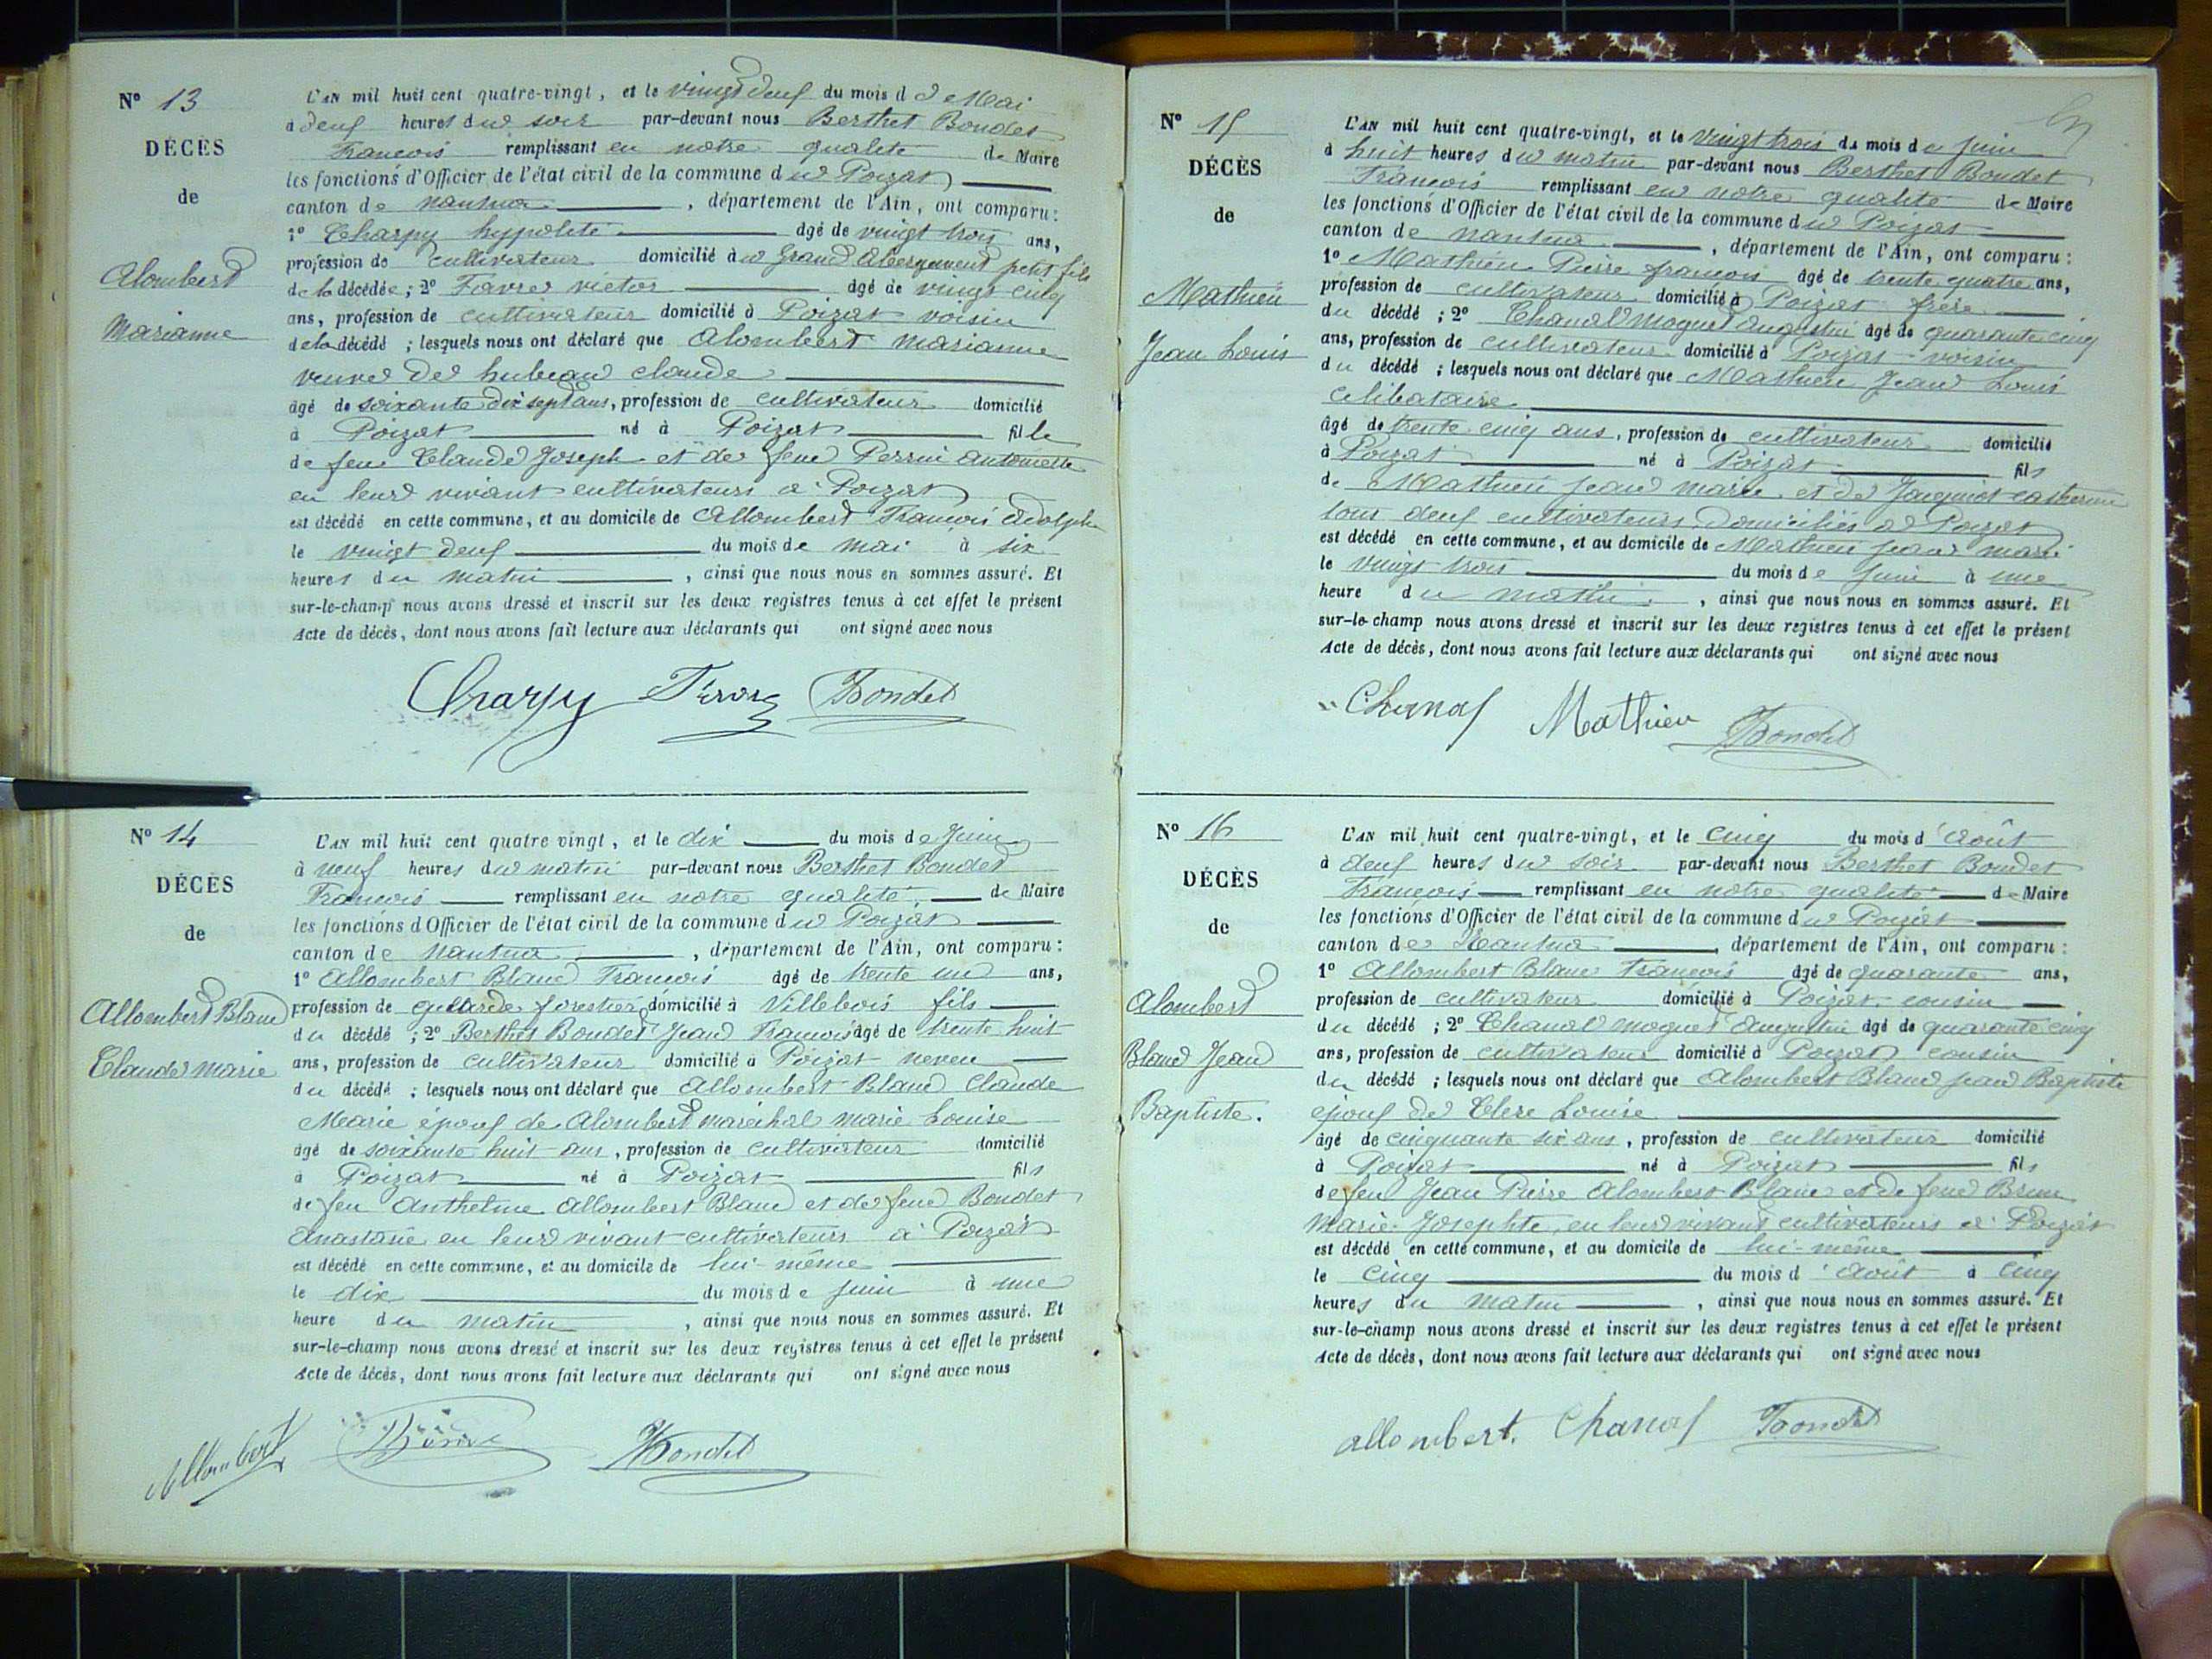 Nº 13
DÉCÈS
de
Alombert
Marianne
L'AN mil huit cent quatre-vingt, et le vingt deux du mois d e Mai
à deux heures du soir par-devant nous Berthet Bondet
François remplissant en notre qualité de Maire
les fonctions d'Officier de l'état civil de la commune du Poizat
canton de nantua, département de l'Ain, ont comparu :
1º Charpy hyppolite âgé de vingt trois ans,
profession de cultivateur domicilié au Grand Abergement petit fils
de la décédée ; 2º Favre victor âgé de vingt cinq
ans, profession de cultivateur domicilié à Poizat voisin
de la décédé ; lesquels nous ont déclaré que Alombert marianne
veuve de hubeau claude
âgé de soixante dix sept ans, profession de cultivateur domicilié
à Poizat né à Poizat fille
de feu Claude Joseph et de feue Perrin antoinette
en leur vivant cultivateurs à Poizat
est décédé en cette commune, et au domicile de Allombert François Adolphe
le vingt deux du mois de mai à six
heures du matin, ainsi que nous nous en sommes assuré. Et
sur-le-champ nous avons dressé et inscrit sur les deux registres tenus à cet effet le présent
Acte de décès, dont nous avons fait lecture aux déclarants qui ont signé avec nous
Charpy Favre Bondet
Nº 14
DÉCÈS
de
Allombert Blanc
Claude marie
L'AN mil huit cent quatre vingt, et le dix du mois de Juin
à neuf heures du matin par-devant nous Berthet Bondet
François remplissant en notre qualité de Maire
les fonctions d'Officier de l'état civil de la commune du Poizat
canton de nantua, département de l'Ain, ont comparu :
1º Allombert Blanc François âgé de trente un ans,
profession de garde forestier domicilié à Villebois fils
du décédé ; 2º Berthet Bondet Jean François âgé de trente huit
ans, profession de cultivateur domicilié à Poizat neveu
du décédé ; lesquels nous ont déclaré que Allombert Blanc Claude
Marie époux de Alombert maréchal marie Louise
âgé de soixante huit ans, profession de cultivateur domicilié
à Poizat né à Poizat fils
de feu Anthelme Allombert Blanc et de feue Bondet
Anastasie en leur vivant cultivateurs à Poizat
est décédé en cette commune, et au domicile de lui-même
le dix du mois de juin à une
heure du matin, ainsi que nous nous en sommes assuré. Et
sur-le-champ nous avons dressé et inscrit sur les deux registres tenus à cet effet le présent
Acte de décès, dont nous avons fait lecture aux déclarants qui ont signé avec nous
Allombert Bondet
Nº 15
DÉCÈS
de
Mathieu
Jean Louis
L'AN mil huit cent quatre-vingt, et le vingt trois du mois de juin
à huit heures du matin par-devant nous Berthet Bondet
François remplissant en notre qualité de Maire
les fonctions d'Officier de l'état civil de la commune du Poizat
canton de nantua, département de l'Ain, ont comparu :
1º Mathieu Pierre françois âgé de trente quatre ans,
profession de cultivateur domicilié à Poizat frère
du décédé ; 2º Chanal Moguet Augustin âgé de quarante cinq
ans, profession de cultivateur domicilié à Poizat voisin
du décédé ; lesquels nous ont déclaré que Mathieu Jean Louis
célibataire
âgé de trente cinq ans, profession de cultivateur domicilié
à Poizat né à Poizat fils
de Mathieu jean marie et de Jacquiot catherine
tous deux cultivateurs domiciliés à Poizat
est décédé en cette commune, et au domicile de Mathieu jean marie
le vingt trois du mois de juin à une
heure du matin, ainsi que nous nous en sommes assuré. Et
sur-le-champ nous avons dressé et inscrit sur les deux registres tenus à cet effet le présent
Acte de décès, dont nous avons fait lecture aux déclarants qui ont signé avec nous
Chanal Mathieu Bondet
Nº 16
DÉCÈS
de
Alombert
Blanc Jean
Baptiste.
L'AN mil huit cent quatre-vingt, et le cinq du mois d'Août
à deux heures du soir par-devant nous Berthet Bondet
François remplissant en notre qualité de Maire
les fonctions d'Officier de l'état civil de la commune du Poizat
canton de Nantua, département de l'Ain, ont comparu :
1º Allombert Blanc François âgé de quarante ans,
profession de cultivateur domicilié à Poizat cousin
du décédé ; 2º Chanal moguet Augustin âgé de quarante cinq
ans, profession de cultivateur domicilié à Poizat cousin
du décédé ; lesquels nous ont déclaré que Alombert Blanc jean Baptiste
époux de Clere Louise
âgé de cinquante six ans, profession de cultivateur domicilié
à Poizat né à Poizat fils
de feu Jean Pierre Alombert Blanc et de feue Brun
Marie Josephte, en leur vivant cultivateurs à Poizat
est décédé en cette commune, et au domicile de lui-même
le cinq du mois d'Août à cinq
heures du matin, ainsi que nous nous en sommes assuré. Et
sur-le-champ nous avons dressé et inscrit sur les deux registres tenus à cet effet le présent
Acte de décès, dont nous avons fait lecture aux déclarants qui ont signé avec nous
allombert. Chanal Bondet